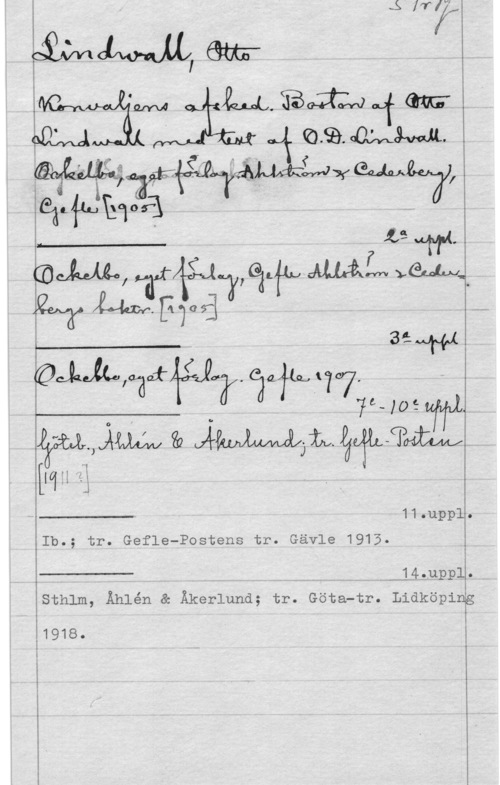 Lindwall, Otto
Konvaljens afsked. Boston af Otto
Lindwall med text af O.D. Lindvall.
Ockelbo, eget förlag, Ahlström & Cederberg,
Gefle [1905]
2a uppl.
Ockelbo, eget förlag, Gefle Ahlström & Ceder-
bergs boktr. [1905]
3e uppl
Ockelbo, eget förlag. Gefle 1907.
7e - 10e uppl.
Göteb., Åhlén & Åkerlund; tr. Gefle-Posten
[1911 ?]
11.uppl.
Ib.; tr. Gefle-Postens tr. Gävle 1913.
14.uppl.
Sthlm, Åhlén & Åkerlund; tr. Göta-tr. Lidköping
1918.